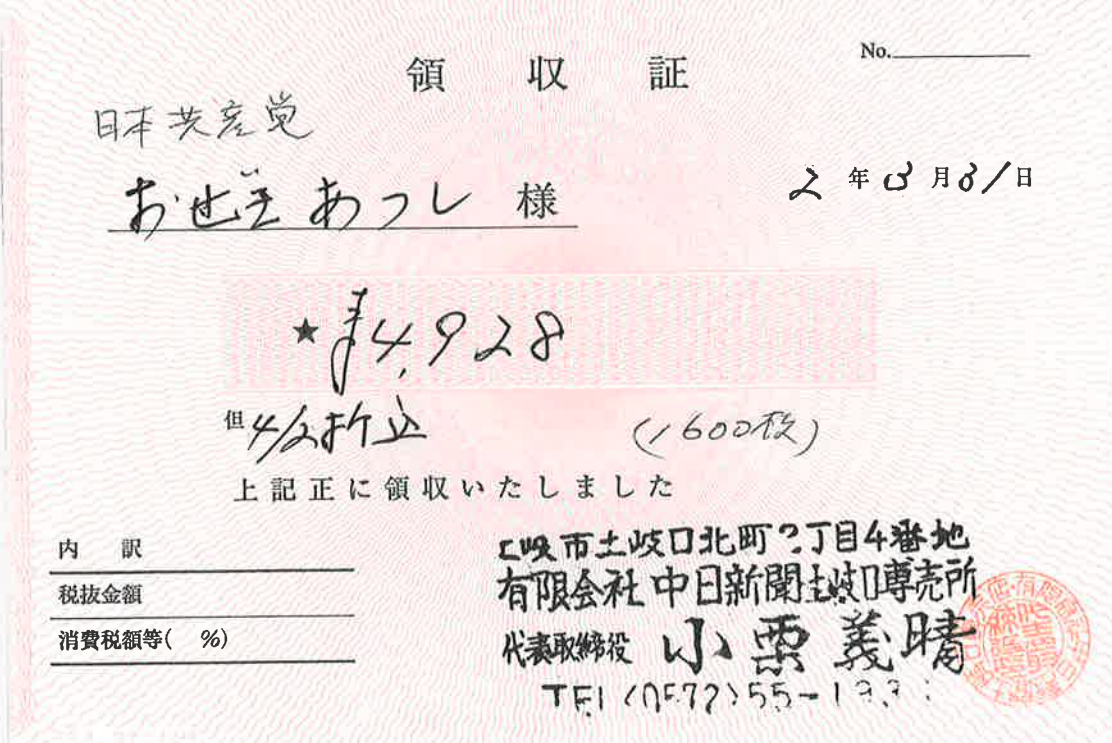 領収証
No.
日本共産党
おぜきあつし 様
2年3月31日
★ ¥4,928
但 4/2折込 (1600枚)
上記正に領収いたしました
内訳
税抜金額
消費税額等( %)
土岐市土岐口北町2丁目4番地
有限会社 中日新聞土岐口専売所
代表取締役 小栗義晴
TEL(0572)55-